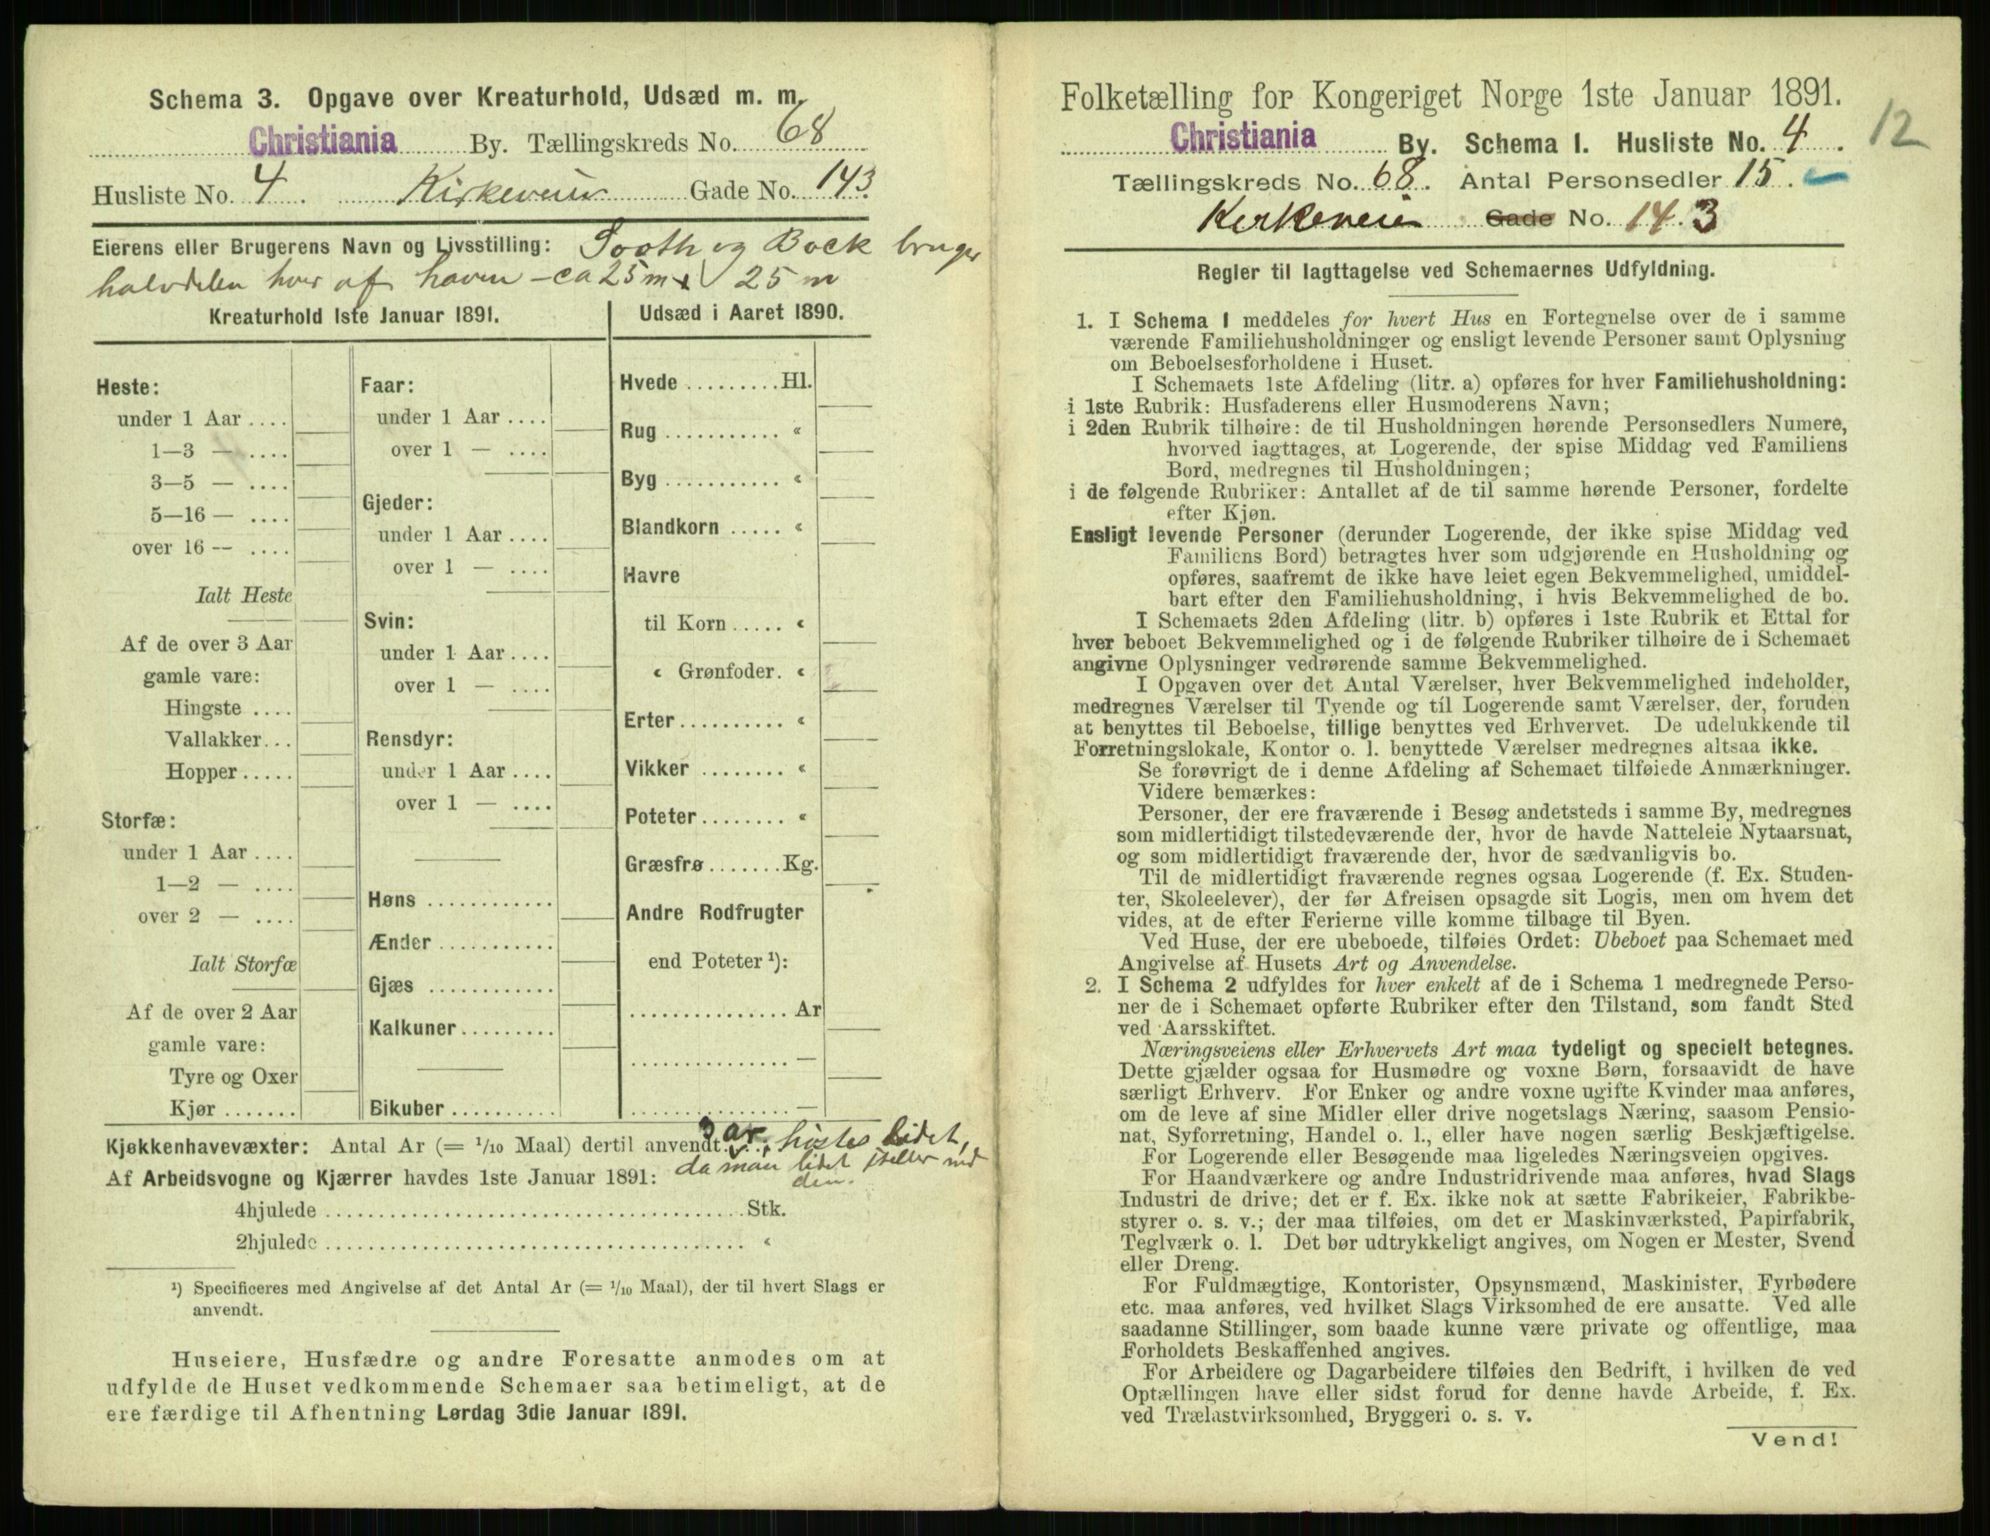 Schema 3. Opgave over Kreaturhold, Udsæd m. m.
Christiania By. Tællingskreds No. 68
Husliste No. 4. Kirkeveien Gade No. 143
Eierens eller Brugerens Navn og Livsstilling: Sooth og Bock bruger
halvdelen hver af haven - ca 25 m x 25 m
Kreaturhold 1ste Januar 1891.
Heste:
under 1 Aar ....
1—3 — ....
3—5 — ....
5—16 — ....
over 16 — ....
Ialt Heste
Af de over 3 Aar
gamle vare:
Hingste ....
Vallakker...
Hopper.....
Storfæ:
under 1 Aar ....
1—2 — ....
over 2 — ....
Ialt Storfæ
Af de over 2 Aar
gamle vare:
Tyre og Oxer
Kjør .......
Faar:
under 1 Aar ....
over 1 — ....
Gjeder:
under 1 Aar ....
over 1 — ....
Svin:
under 1 Aar ....
over 1 — ....
Rensdyr:
under 1 Aar ....
over 1 — ....
Høns ............
Ænder ...........
Gjæs ............
Kalkuner.........
Bikuber ..........
Udsæd i Aaret 1890.
Hvede .........Hl.
Rug ........... «
Byg ........... «
Blandkorn ..... «
Havre
til Korn ..... «
« Grønfoder. «
Erter .......... «
Vikker ........ «
Poteter........ «
Græsfrø .......Kg.
Andre Rodfrugter
end Poteter ¹):
............... Ar
............... —
............... —
Kjøkkenhavevæxter: Antal Ar (= 1/10 Maal) dertil anvendt 3 ar. høstes lidet,
da man lidet steller med
den.
Af Arbeidsvogne og Kjærrer havdes 1ste Januar 1891:
4hjulede ........................................Stk.
2hjulede ........................................ «
¹) Specificeres med Angivelse af det Antal Ar (= 1/10 Maal), der til hvert Slags er
anvendt.
Huseiere, Husfædre og andre Foresatte anmodes om at
udfylde de Huset vedkommende Schemaer saa betimeligt, at de
ere færdige til Afhentning Lørdag 3die Januar 1891.
Folketælling for Kongeriget Norge 1ste Januar 1891.
12
Christiania By. Schema I. Husliste No. 4.
Tællingskreds No. 68. Antal Personsedler 15.
Kirkeveien Gade No. 143
Regler til Iagttagelse ved Schemaernes Udfyldning.
1. I Schema I meddeles for hvert Hus en Fortegnelse over de i samme
værende Familiehusholdninger og ensligt levende Personer samt Oplysning
om Beboelsesforholdene i Huset.
I Schemaets 1ste Afdeling (litr. a) opføres for hver Familiehusholdning:
i 1ste Rubrik: Husfaderens eller Husmoderens Navn;
i 2den Rubrik tilhøire: de til Husholdningen hørende Personsedlers Numere,
hvorved iagttages, at Logerende, der spise Middag ved Familiens
Bord, medregnes til Husholdningen;
i de følgende Rubriker: Antallet af de til samme hørende Personer, fordelte
efter Kjøn.
Ensligt levende Personer (derunder Logerende, der ikke spise Middag ved
Familiens Bord) betragtes hver som udgjørende en Husholdning og
opføres, saafremt de ikke have leiet egen Bekvemmelighed, umiddel-
bart efter den Familiehusholdning, i hvis Bekvemmelighed de bo.
I Schemaets 2den Afdeling (litr. b) opføres i 1ste Rubrik et Ettal for
hver beboet Bekvemmelighed og i de følgende Rubriker tilhøire de i Schemaet
angivne Oplysninger vedrørende samme Bekvemmelighed.
I Opgaven over det Antal Værelser, hver Bekvemmelighed indeholder,
medregnes Værelser til Tyende og til Logerende samt Værelser, der, foruden
at benyttes til Beboelse, tillige benyttes ved Erhvervet. De udelukkende til
Forretningslokale, Kontor o. l. benyttede Værelser medregnes altsaa ikke.
Se forøvrigt de i denne Afdeling af Schemaet tilføiede Anmærkninger.
Videre bemærkes:
Personer, der ere fraværende i Besøg andetsteds i samme By, medregnes
som midlertidigt tilstedeværende der, hvor de havde Natteleie Nytaarsnat,
og som midlertidigt fraværende der, hvor de sædvanligvis bo.
Til de midlertidigt fraværende regnes ogsaa Logerende (f. Ex. Studen-
ter, Skoleelever), der før Afreisen opsagde sit Logis, men om hvem det
vides, at de efter Ferierne ville komme tilbage til Byen.
Ved Huse, der ere ubeboede, tilføies Ordet: Ubeboet paa Schemaet med
Angivelse af Husets Art og Anvendelse.
2. I Schema 2 udfyldes for hver enkelt af de i Schema 1 medregnede Perso-
ner de i Schemaet opførte Rubriker efter den Tilstand, som fandt Sted
ved Aarsskiftet.
Næringsveiens eller Erhvervets Art maa tydeligt og specielt betegnes.
Dette gjælder ogsaa for Husmødre og voxne Børn, forsaavidt de have
særligt Erhverv. For Enker og andre voxne ugifte Kvinder maa anføres,
om de leve af sine Midler eller drive nogetslags Næring, saasom Pensio-
nat, Syforretning, Handel o. l., eller have nogen særlig Beskjæftigelse.
For Logerende eller Besøgende maa ligeledes Næringsveien opgives.
For Haandværkere og andre Industridrivende maa anføres, hvad Slags
Industri de drive; det er f. Ex. ikke nok at sætte Fabrikeier, Fabrikbe-
styrer o. s. v.; der maa tilføies, om det er Maskinværksted, Papirfabrik,
Teglværk o. l. Det bør udtrykkeligt angives, om Nogen er Mester, Svend
eller Dreng.
For Fuldmægtige, Kontorister, Opsynsmænd, Maskinister, Fyrbødere
etc. maa anføres, ved hvilket Slags Virksomhed de ere ansatte. Ved alle
saadanne Stillinger, som baade kunne være private og offentlige, maa
Forholdets Beskaffenhed angives.
For Arbeidere og Dagarbeidere tilføies den Bedrift, i hvilken de ved
Optællingen have eller sidst forud for denne havde Arbeide, f. Ex.
ved Trælastvirksomhed, Bryggeri o. s. v.
Vend!